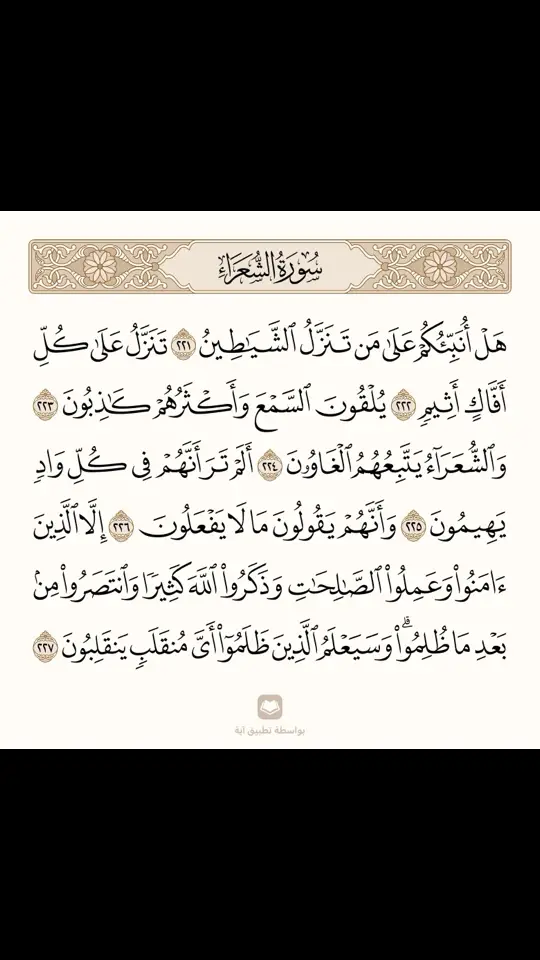 سُورَةُ الشُّعَرَاءِ
هَلۡ أُنَبِّئُكُمۡ عَلَىٰ مَن تَنَزَّلُ ٱلشَّيَٰطِينُ ٢٢١ تَنَزَّلُ عَلَىٰ كُلِّ
أَفَّاكٍ أَثِيمٖ ٢٢٢ يُلۡقُونَ ٱلسَّمۡعَ وَأَكۡثَرُهُمۡ كَٰذِبُونَ ٢٢٣
وَٱلشُّعَرَآءُ يَتَّبِعُهُمُ ٱلۡغَاوُۥنَ ٢٢٤ أَلَمۡ تَرَ أَنَّهُمۡ فِي كُلِّ وَادٖ
يَهِيمُونَ ٢٢٥ وَأَنَّهُمۡ يَقُولُونَ مَا لَا يَفۡعَلُونَ ٢٢٦ إِلَّا ٱلَّذِينَ
ءَامَنُواْ وَعَمِلُواْ ٱلصَّٰلِحَٰتِ وَذَكَرُواْ ٱللَّهَ كَثِيرٗا وَٱنتَصَرُواْ مِنۢ
بَعۡدِ مَا ظُلِمُواْۗ وَسَيَعۡلَمُ ٱلَّذِينَ ظَلَمُوٓاْ أَيَّ مُنقَلَبٖ يَنقَلِبُونَ ٢٢٧
بواسطة تطبيق آية